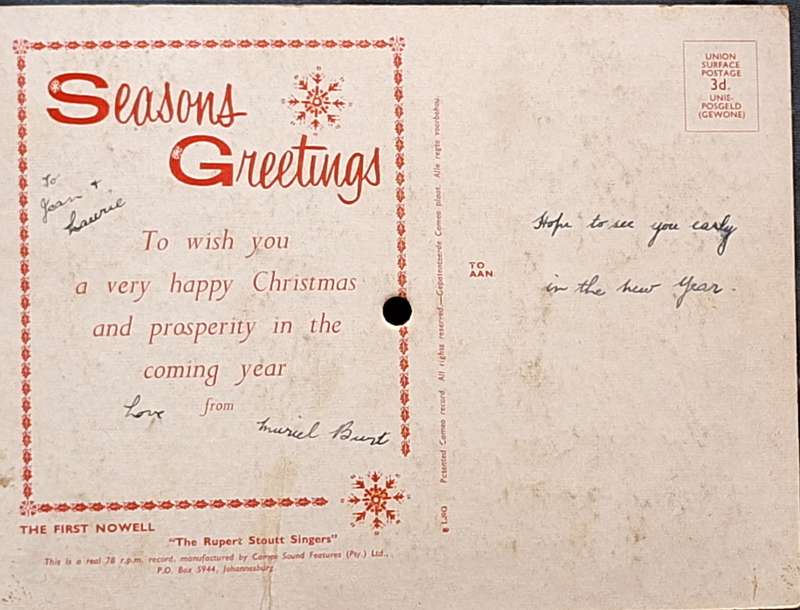 Seasons
Greetings
To
Jean +
Laurie
To wish you
a very happy Christmas
and prosperity in the
coming year
Love from
Muriel Burt
THE FIRST NOWELL
"The Rupert Stoutt Singers"
This is a real 78 r.p.m. record, manufactured by Cameo Sound Features (Pty.) Ltd.,
P.O. Box 5944, Johannesburg.
Patented Cameo record. All rights reserved.—Gepatenteerde Cameo plaat. Alle regte voorbehou.
UNION
SURFACE
POSTAGE
3d.
UNIE-
POSGELD
(GEWONE)
TO
AAN
Hope to see you early
in the new Year.